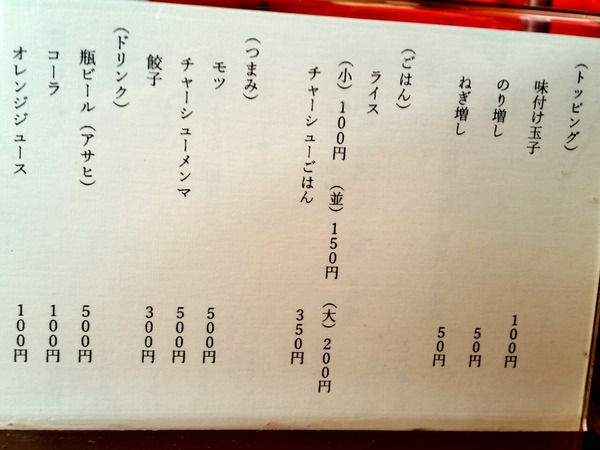 （トッピング）
味付け玉子 100円
のり増し 50円
ねぎ増し 50円
（ごはん）
ライス
（小）100円 （並）150円 （大）200円
チャーシューごはん 350円
（つまみ）
モツ 500円
チャーシューメンマ 500円
餃子 300円
（ドリンク）
瓶ビール（アサヒ） 500円
コーラ 100円
オレンジジュース 100円